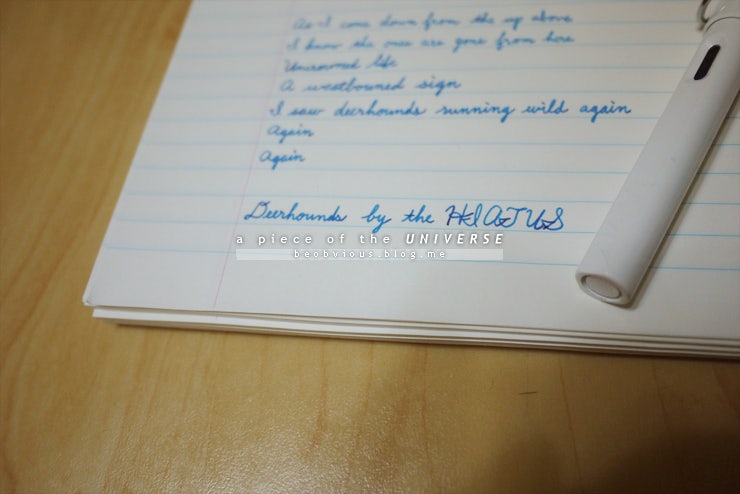 As I come down from the up above
I know the ones are gone from here
Uncrowned life
A westbouned sign
I saw deerhounds running wild again
Again
Again
Deerhounds by the HIATUS
a piece of the UNIVERSE
beobvious.blog.me